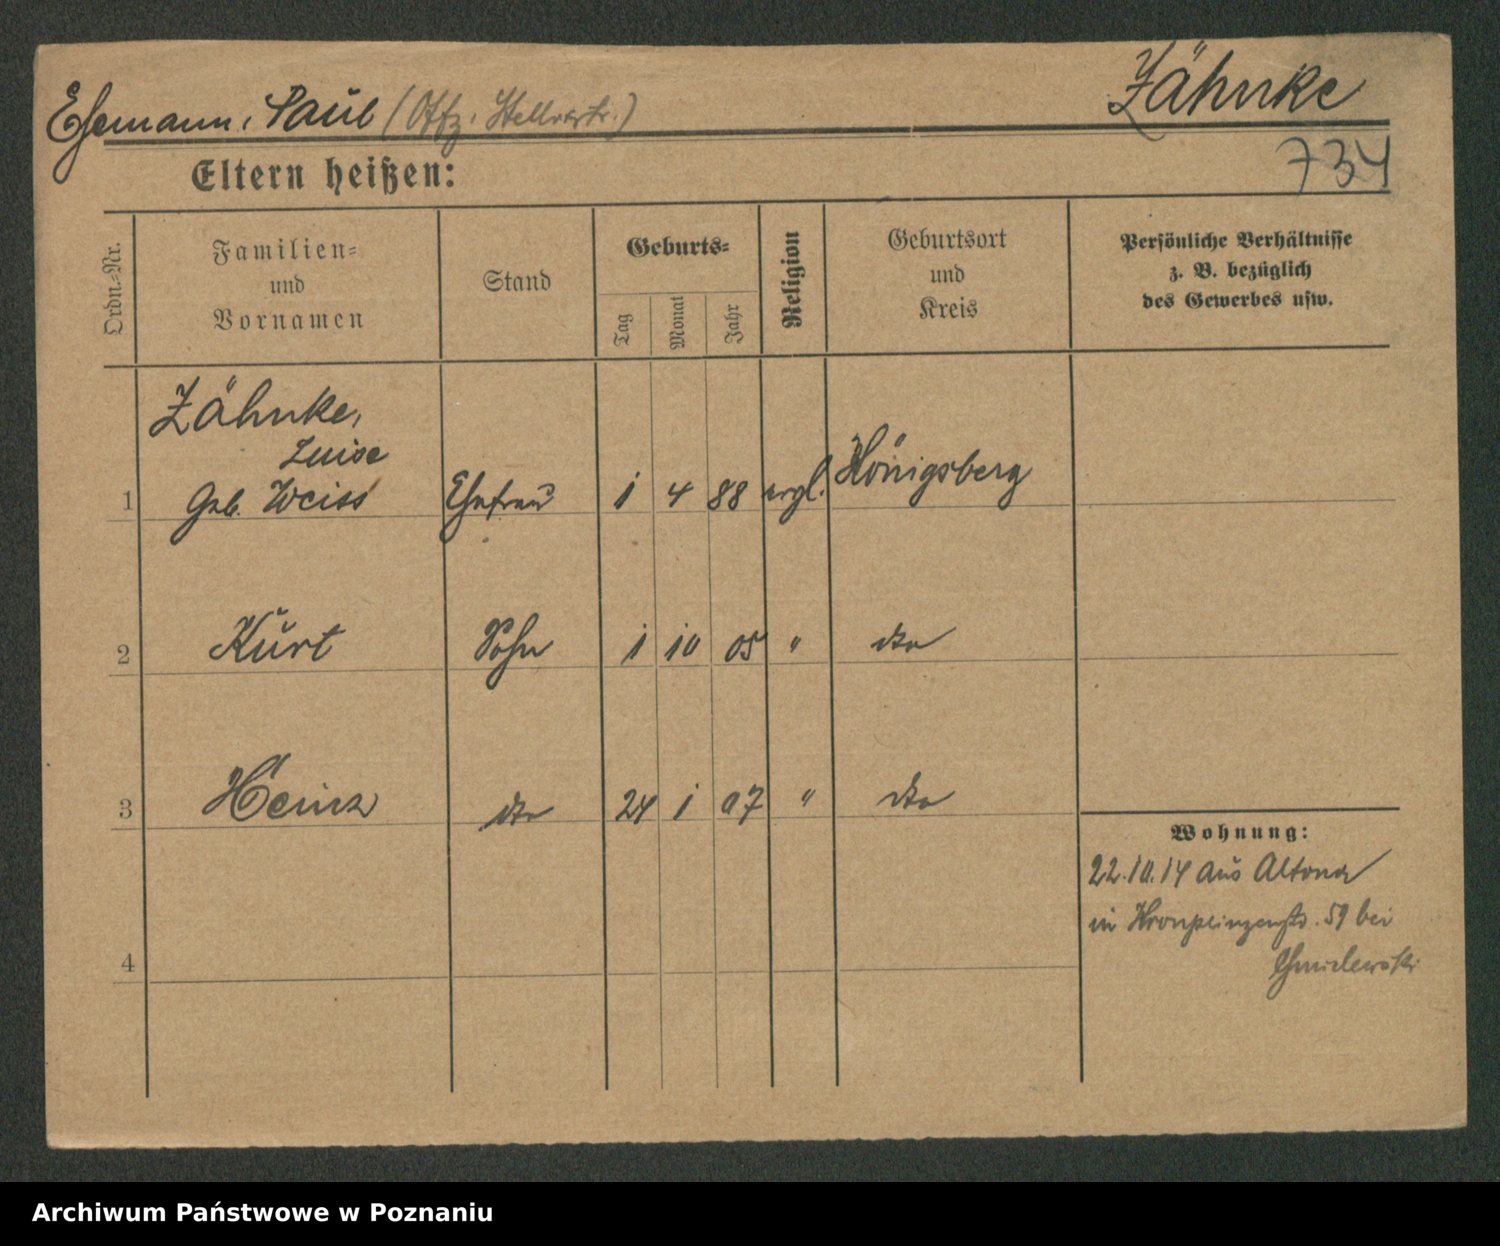 Ehemann, Paul (Offz. Stellvertr.) Zähnke
734
Eltern heißen:
Ordn.-Nr. Familien- und Vornamen Stand Geburts- Tag Monat Jahr Religion Geburtsort und Kreis Persönliche Verhältnisse z. B. bezüglich des Gewerbes usw.
Zähnke,
Luise
1 Geb. Weiss Ehefrau 1 4 88 evgl. Königsberg
2 Kurt Sohn 1 10 05 " dto
3 Heinz dto 24 1 07 " dto
Wohnung:
22.10.14 aus Altona
in Kronprinzenstr. 59 bei
Chmielewski
4
Archiwum Państwowe w Poznaniu